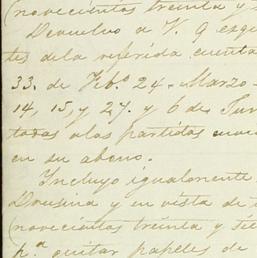 (novecientos treinta y
Devuelvo a V. 9 exp
tes de la referida cuenta
33. de Feb.º 24. Marzo
14, 15, y 27. y 6 de Jun
tadas a las partidas
en su abono.
Incluyo igualmente
y en vista de
(novecientos treinta y sie
p.ª quitar papeles de